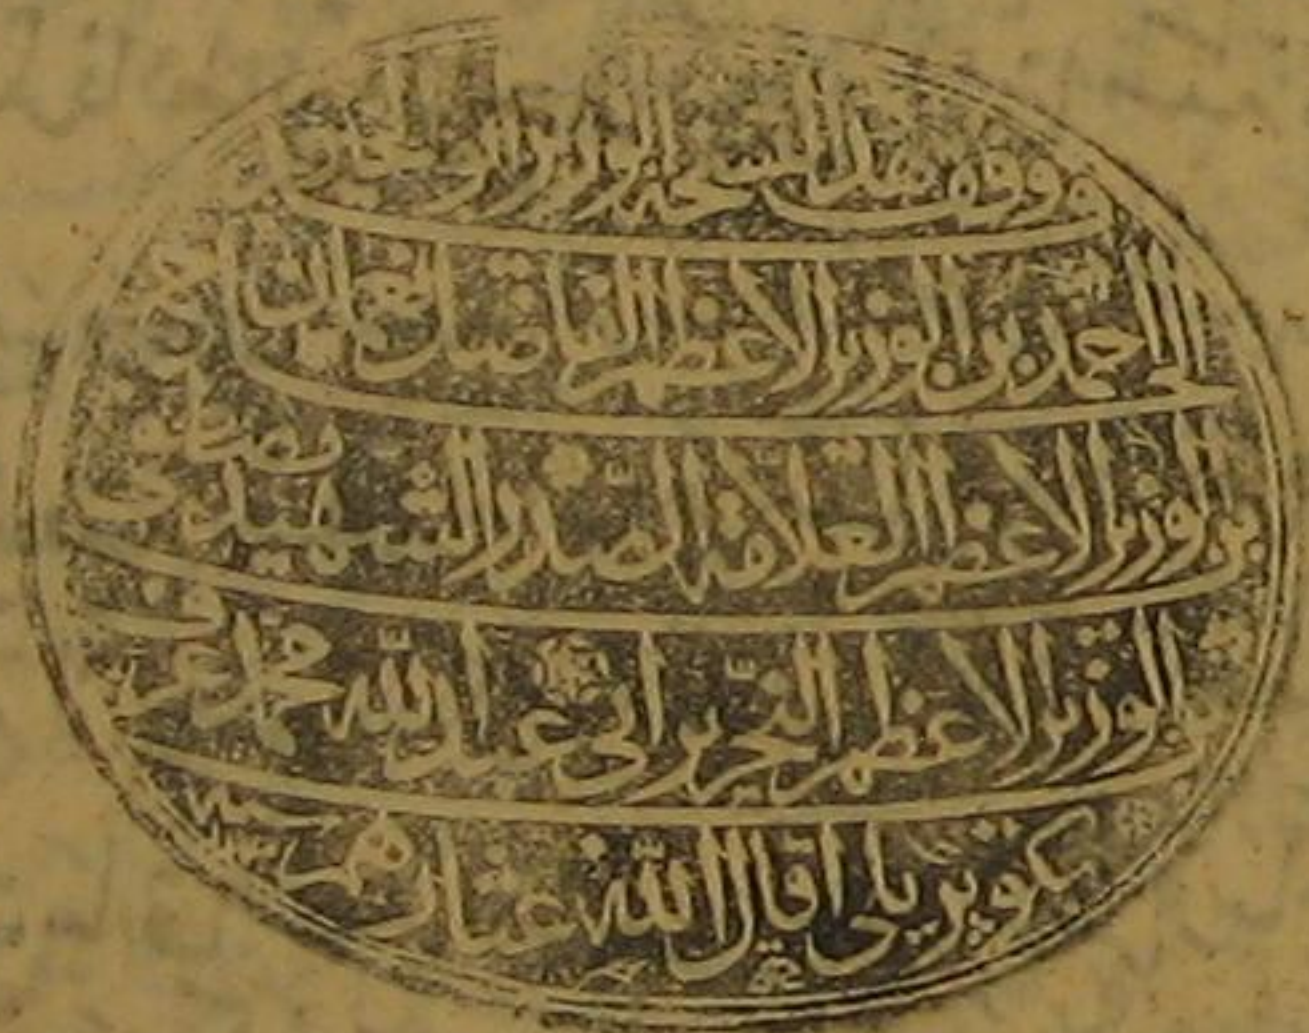 وقف هذا النسخة الوزير ابو
الحاج احمد بن الوزير الاعظم الفاضل نعمان
بن الوزير الاعظم العلامة الصدر الشهيد مصطفى
الوزير الاعظم النحرير ابي عبد الله محمد عرف
بكوپريلي اقال الله عثارهم